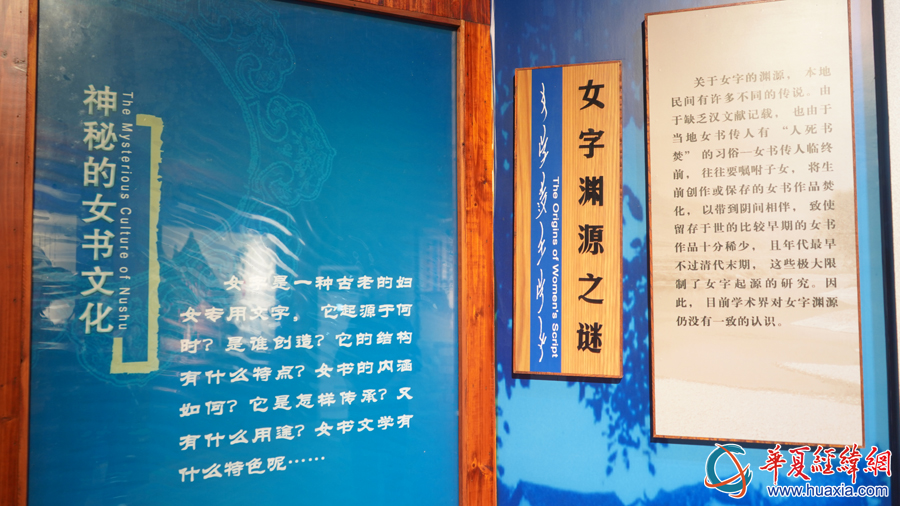 神秘的女书文化
The Mysterious Culture of Nushu
女字是一种古老的妇
女专用文字，它起源于何
时？是谁创造？它的结构
有什么特点？女书的内涵
如何？它是怎样传承？又
有什么用途？女书文学有
什么特色呢……
女字渊源之谜
The Origins of Women's Script
关于女字的渊源，本地
民间有许多不同的传说。由
于缺乏汉文献记载，也由于
当地女书传人有“人死书
焚”的习俗—女书传人临终
前，往往要嘱咐子女，将生
前创作或保存的女书作品焚
化，以带到阴间相伴，致使
留存于世的比较早期的女书
作品十分稀少，且年代最早
不过清代末期，这些极大限
制了女字起源的研究。因
此，目前学术界对女字渊源
仍没有一致的认识。
華夏經緯網
www.huaxia.com